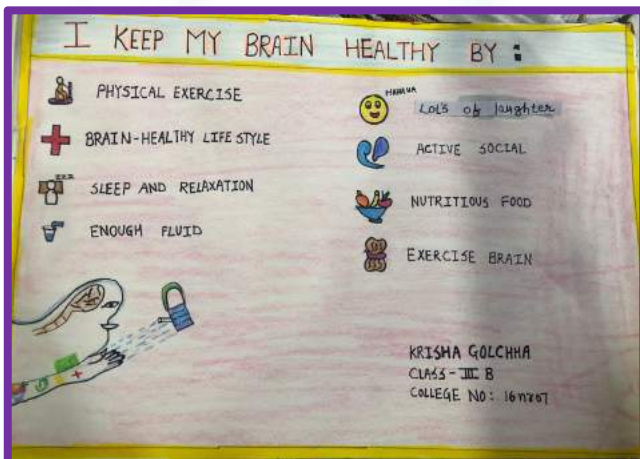 I KEEP MY BRAIN HEALTHY BY :
PHYSICAL EXERCISE
BRAIN-HEALTHY LIFE STYLE
SLEEP AND RELAXATION
ENOUGH FLUID
HAHAHA
Lot's of laughter
ACTIVE SOCIAL
NUTRITIOUS FOOD
EXERCISE BRAIN
KRISHA GOLCHHA
CLASS - III B
COLLEGE NO: